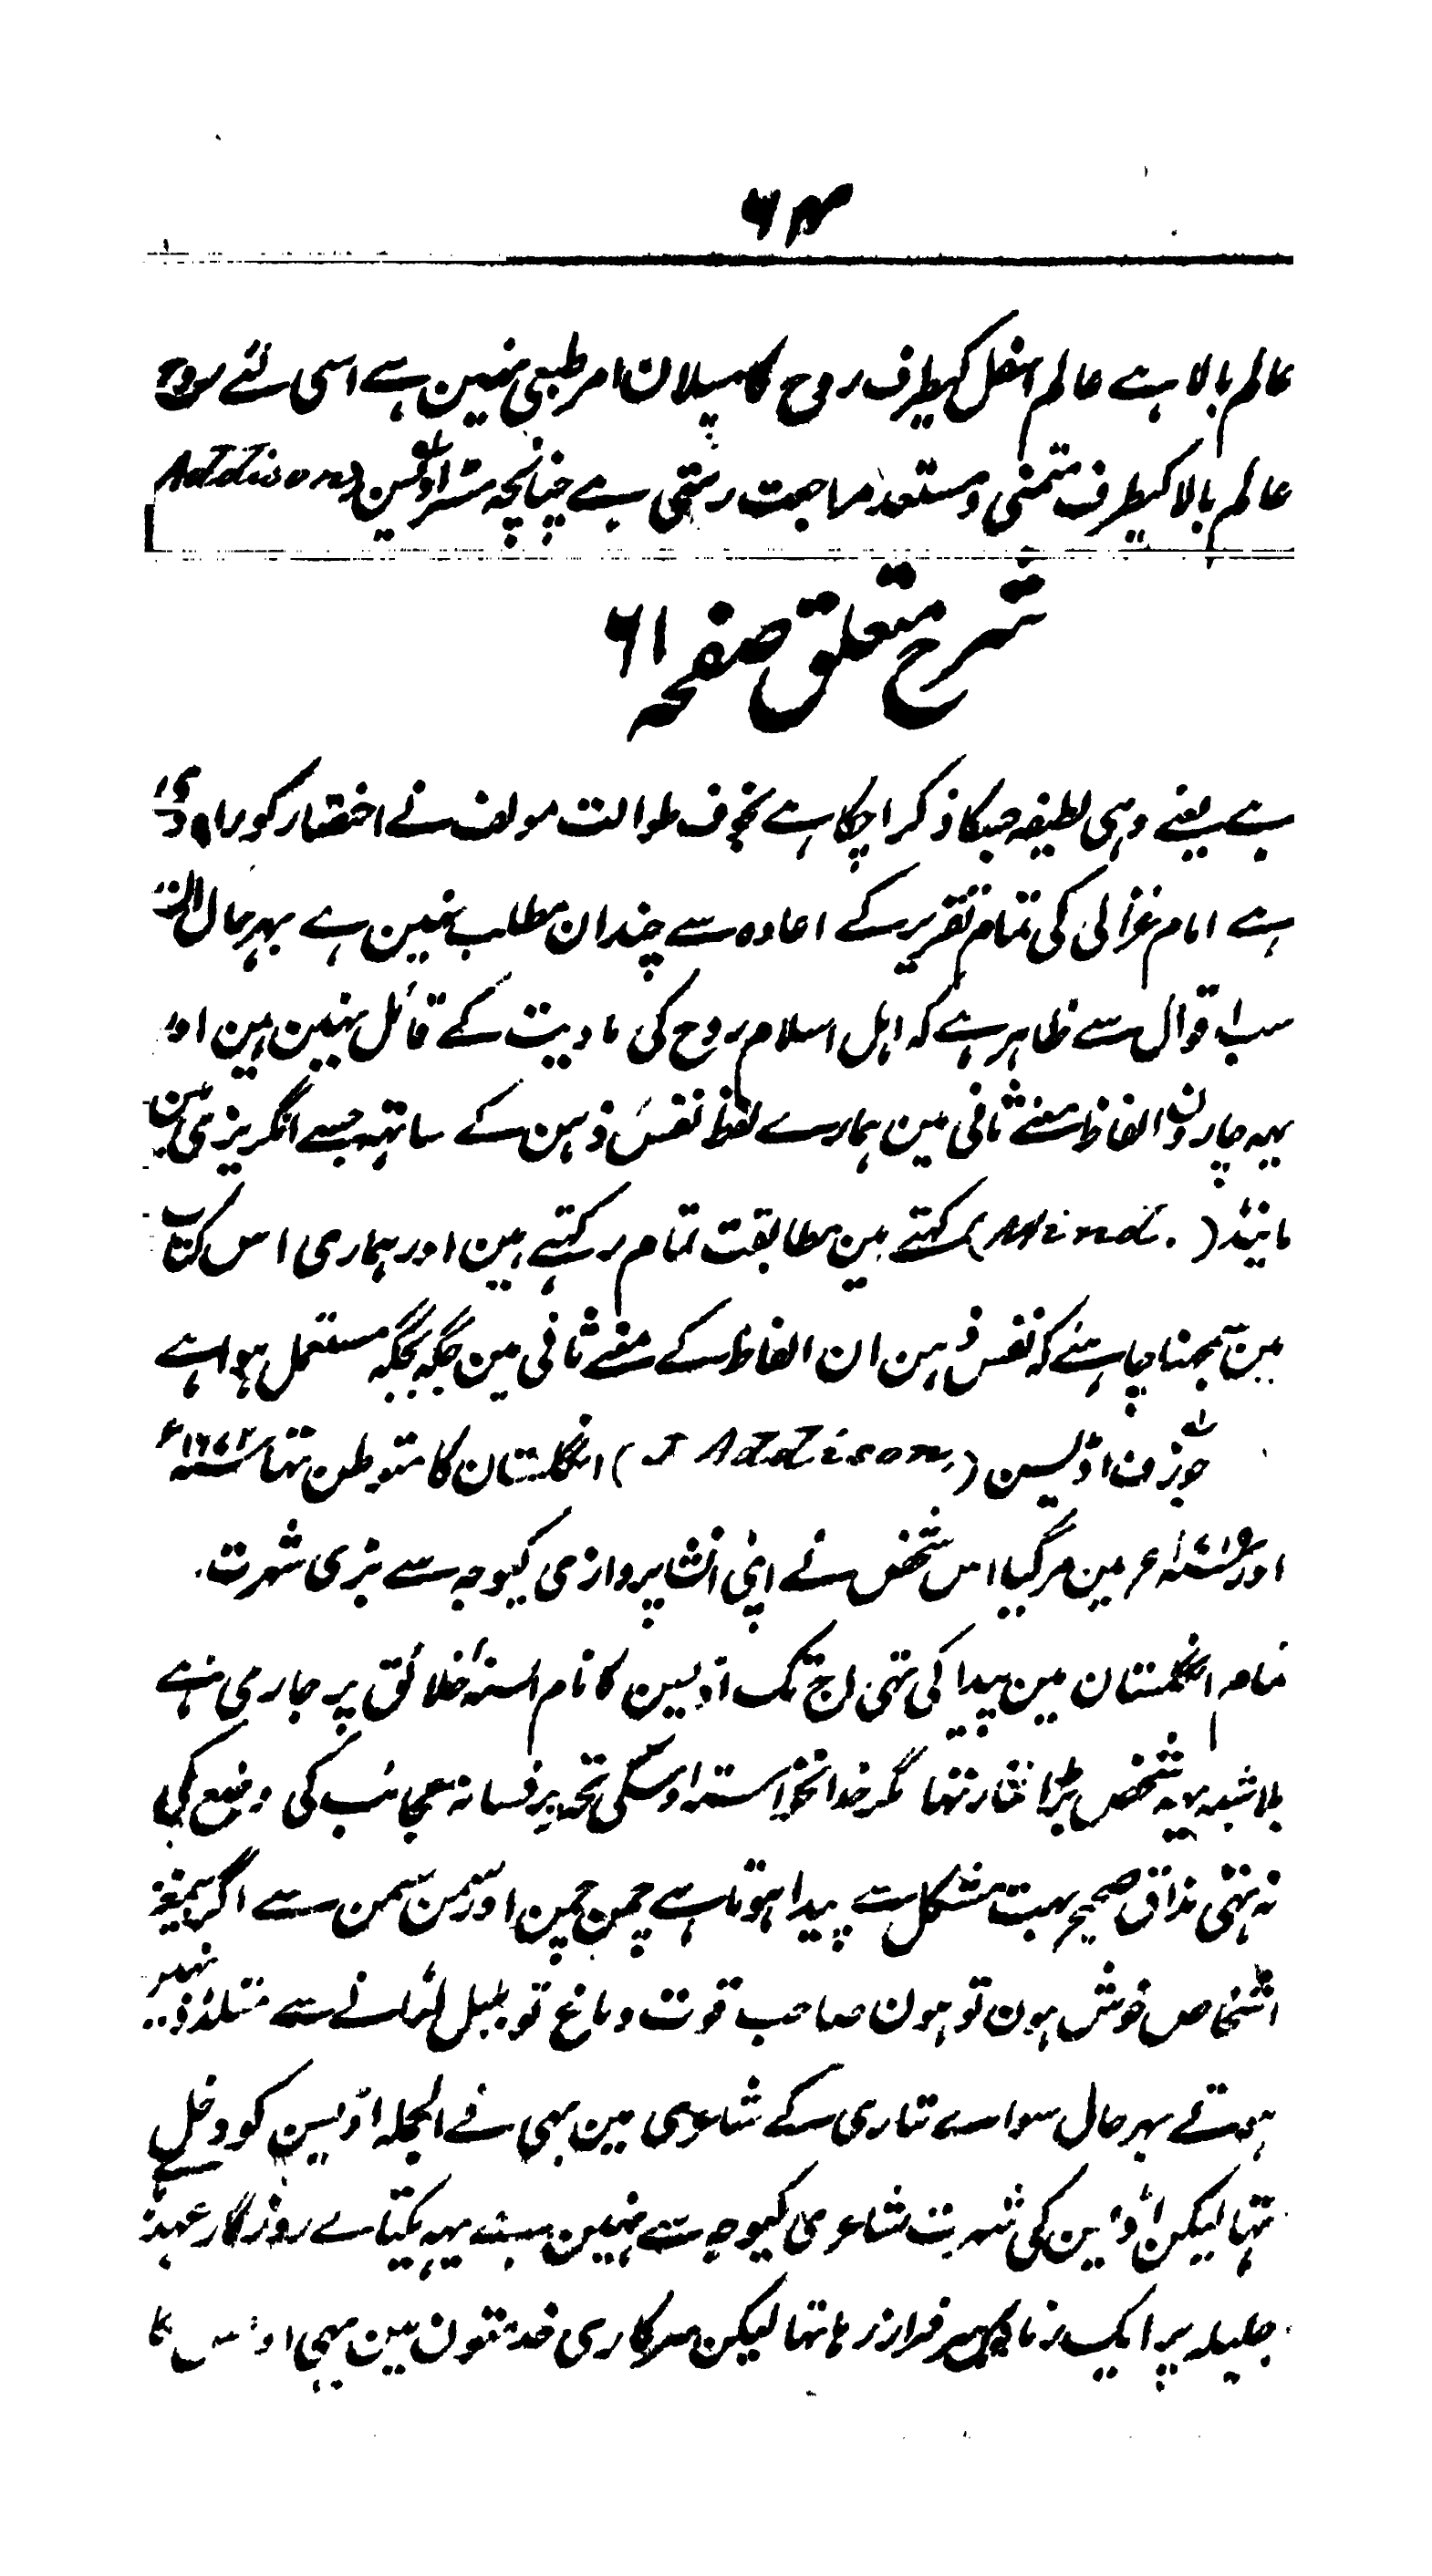 ۶۴
عالم بالا ہے عالم اسفل کیطرف روح کا میلان امر طبعی نہین ہے اسی لئے روح
عالم بالا کیطرف متمنی و مستعد مراجعت رہتی ہے چنانچہ مسٹر اڈیسن (Addison
شرح متعلق صفحہ ۶۱
ہے یعنے وہی لطیفہ جسکا ذکر اچکا ہے بخوف طوالت مولف نے اختصار کو راہ دی
ہے امام غزالی کی تمام تقریر کے اعادہ سے چندان مطلب نہین ہے بہر حال ان
سب اقوال سے ظاہر ہے کہ اہل اسلام روح کی مادیت کے قائل نہین ہین اور
یہہ چارون الفاظ معنے ثانی مین ہمارے لفظ نفس ذہن کے ساتہہ جسے انگریزی مین
مائینڈ (Mind.) کہتے ہین مطابقت تمام رکہتے ہین اور ہماری اس کتاب
مین سمجہنا چاہئے کہ نفس ذہن ان الفاظ کے معنے ثانی مین جگہ بجگہ مستعمل ہوا ہے
جوزف اڈیسن (J Addison,) انگلستان کا متوطن تہا سنہ ۱۶۷۲ء
اور عر مین مرگیا اس شخص نے اپنی انشا پردازی کیوجہ سے بڑی شہرت
تمام انگلستان مین پیدا کی تہی اج تک اڈیسن کا نام السنہ خلائق پر جاری ہے
بلا شبہہ یہہ شخص بڑا نثار تہا مگر خدا نخواستہ اوسکی تحریر فسانہ عجائب کی وضع کی
نہ تہی مذاق صحیح بہت مشکل سے پیدا ہوتا ہے چمن چمن اور سمن سمن سے اگر بیمغز
اشخاص خوش ہون تو ہون صاحب قوت دماغ تو بلبل لڑانے سے متلذذ نہین
ہوتے بہر حال سواے نثاری کے شاعری مین بہی فے الجملہ اڈیسن کو دخل
تہا لیکن اڈیسن کی شہرت شاعری کیوجہ سے نہین ہے یہہ یکتاے روزگار عہدہ
جلیلہ پر ایک زمانہ سرفراز رہا تہا لیکن سرکاری خدمتون مین بہی اوس کا